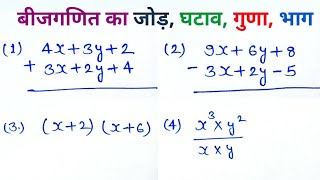 बीजगणित का जोड़, घटाव, गुणा, भाग
(1) 4x+3y+2
+ 3x+2y+4
(2) 9x+6y+8
- 3x+2y-5
(3.) (x+2) (x+6)
(4) x³xy²
x x y